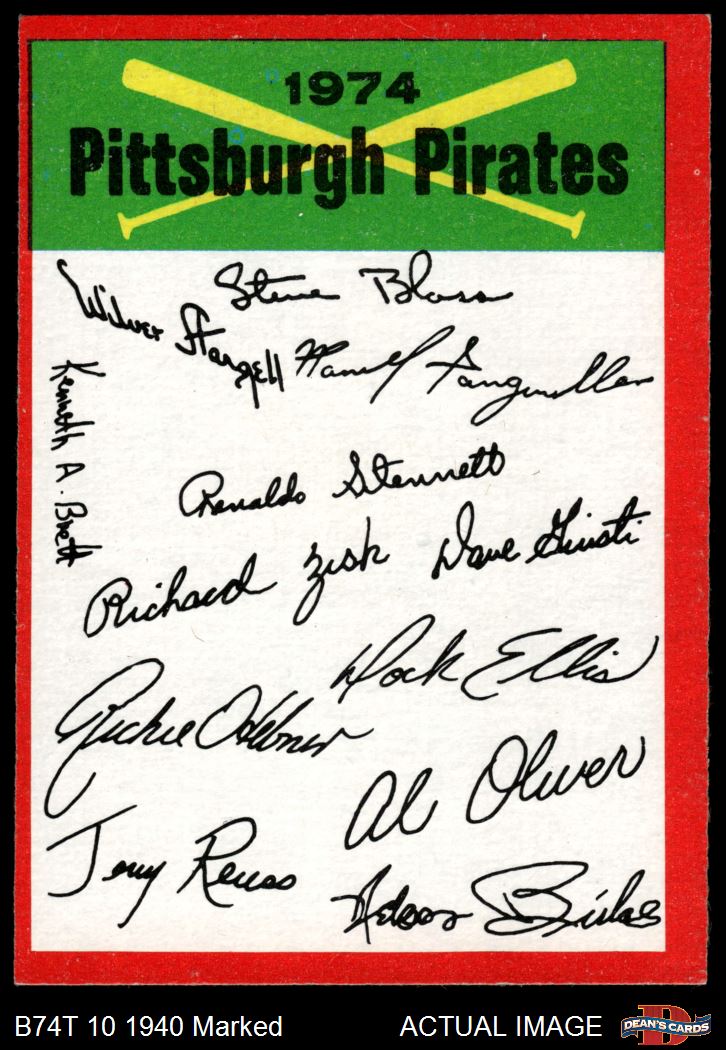 1974
Pittsburgh Pirates
Steve Blass
Wilver Stargell
Manny Sanguillen
Kenneth A. Brett
Renaldo Stennett
Richard Zisk
Dave Giusti
Dock Ellis
Richie Hebner
Al Oliver
Jerry Reuss
Nelson Briles
B74T 10 1940 Marked
ACTUAL IMAGE
D
DEAN'S CARDS